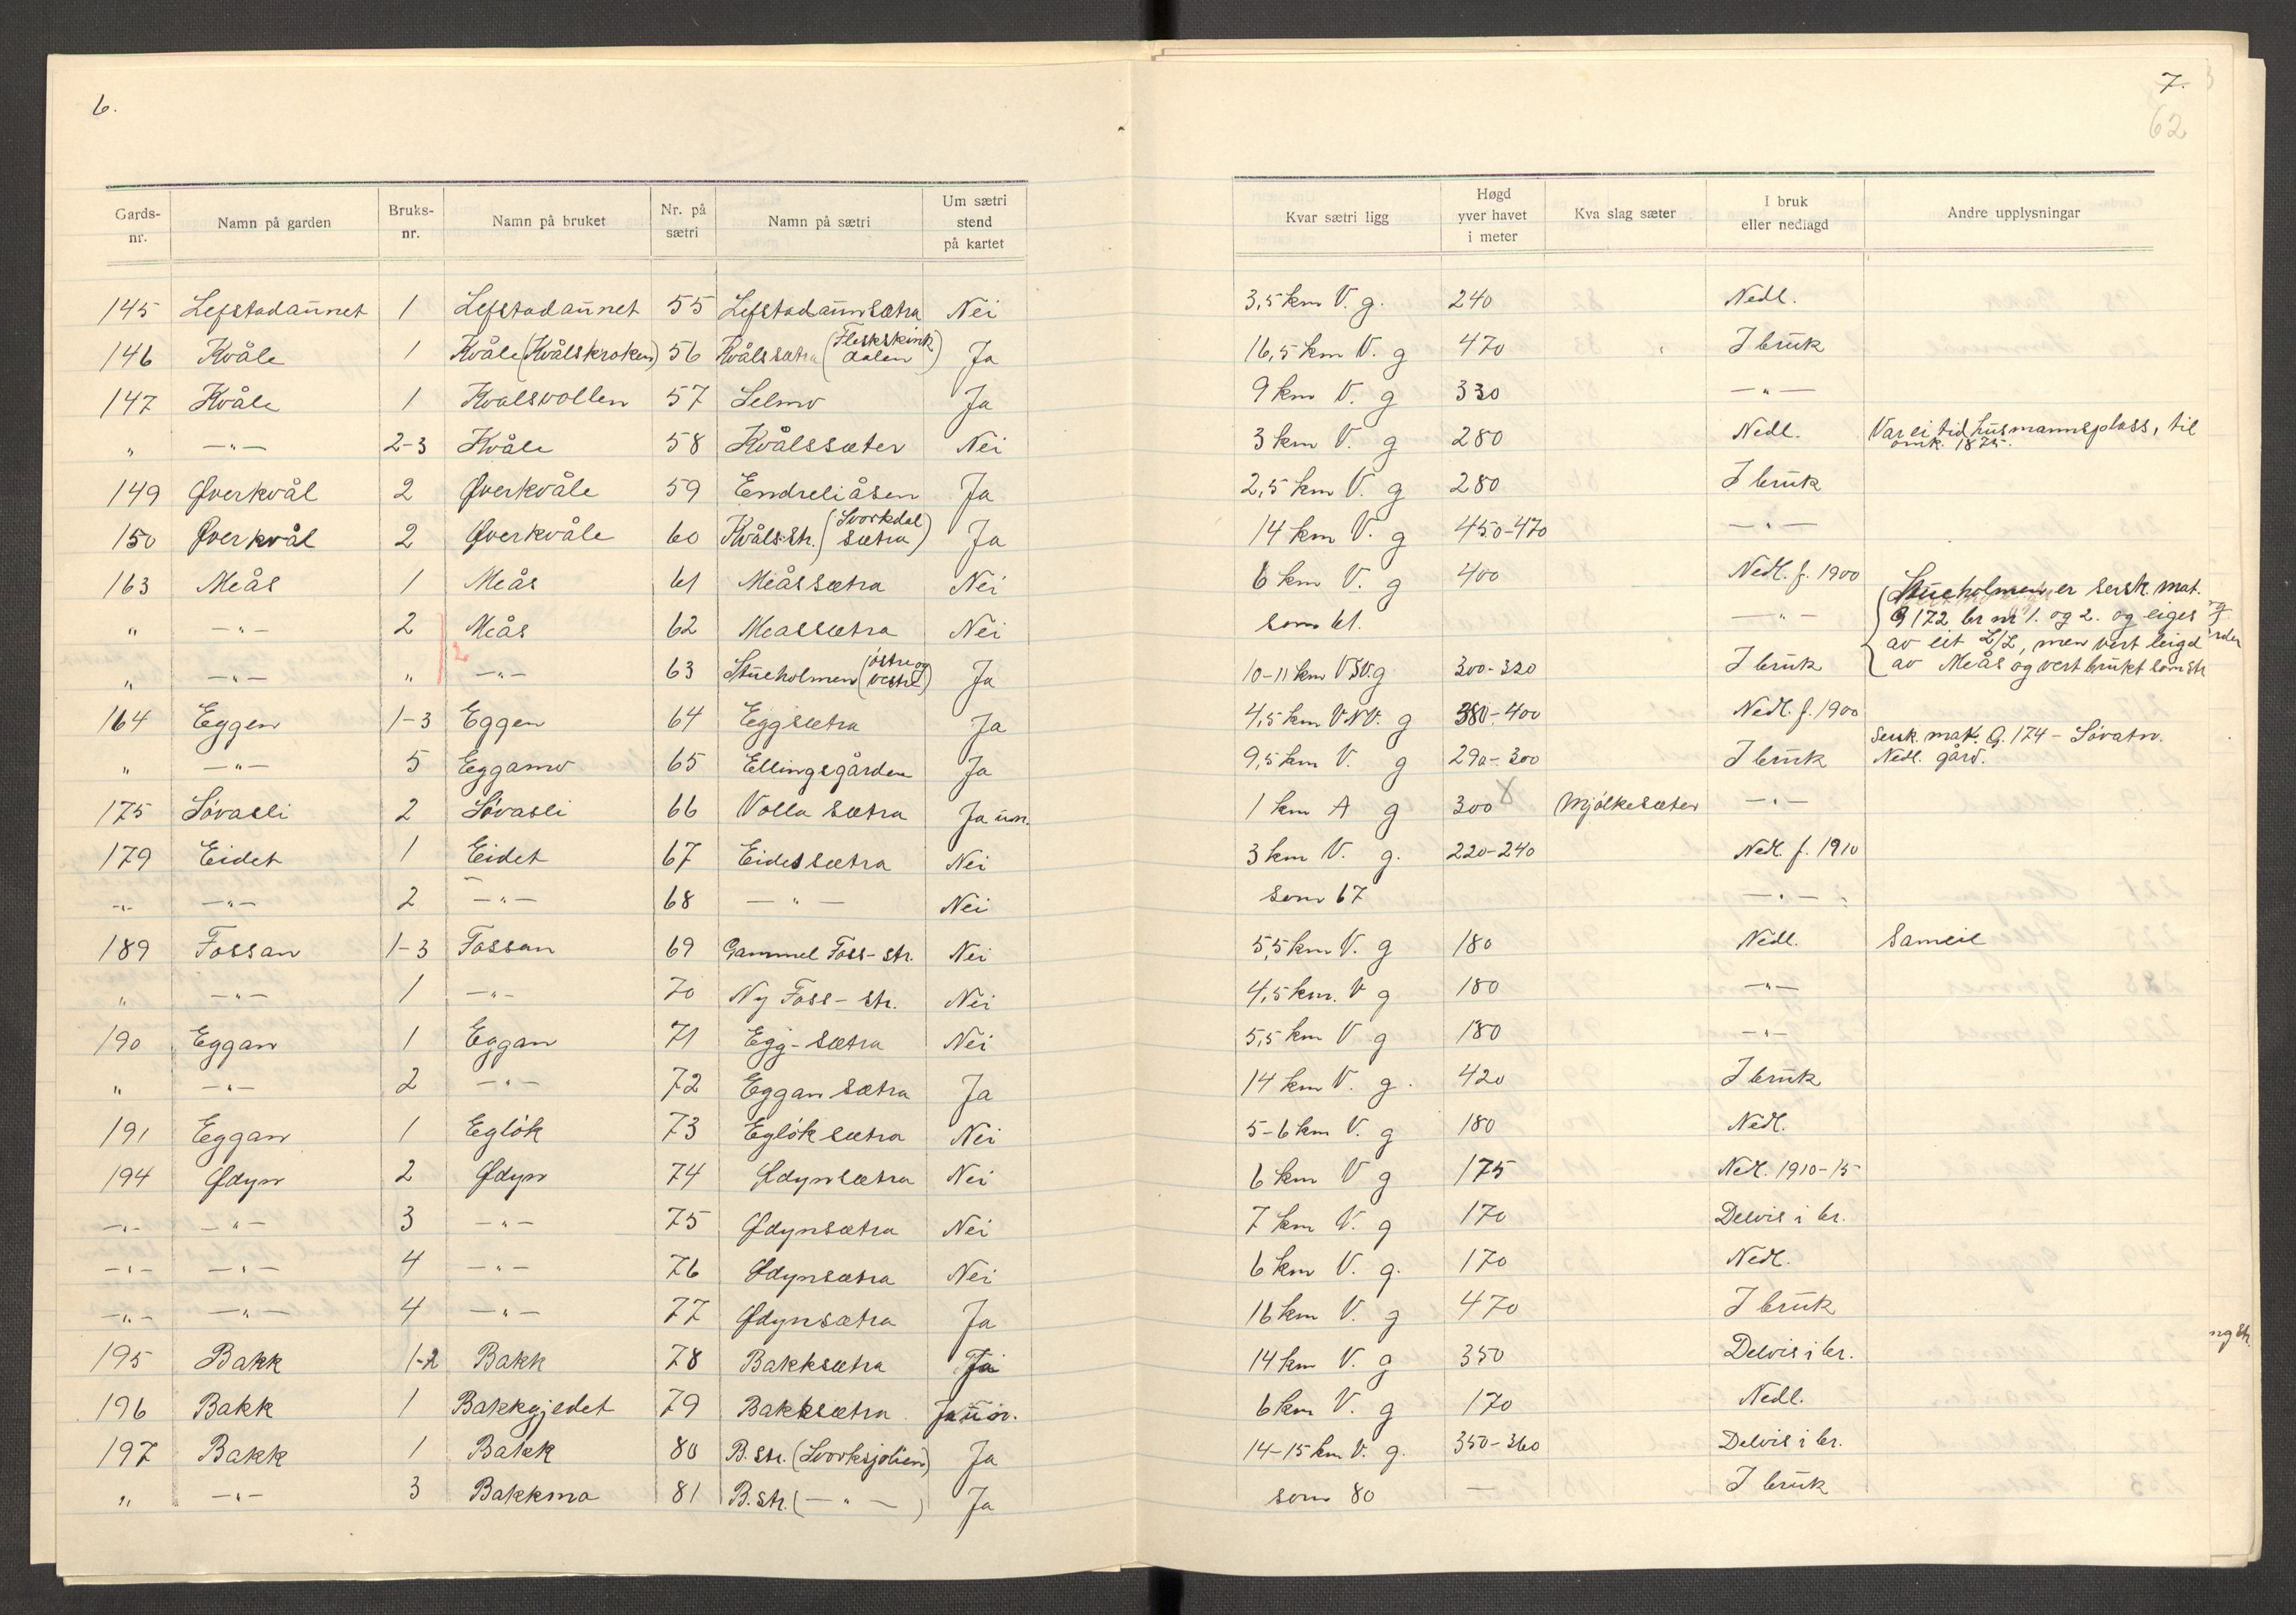 6.
Gards-nr. Namn på garden Bruks-nr. Namn på bruket Nr. på sætri Namn på sætri Um sætri stend på kartet
145 Lefstadaunet 1 Lefstadaunet 55 Lefstadaunsætra Nei
146 Kvåle 1 Kvåle (Kvålskroken) 56 Kvålssætra (Fleskskinkdalen) Ja
147 Kvåle 1 Kvalsvollen 57 Lelmo Ja
" —"— 2-3 Kvåle 58 Kvålssæter Nei
149 Øverkvål 2 Øverkvåle 59 Endreliåsen Ja
150 Øverkvål 2 Øverkvåle 60 Kvåls.str. (Svorkdalsætra) Ja
163 Meås 1 Meås 61 Meåssætra Nei
" —"— 2 Meås 62 Meassætra Nei
" —"— " 2 —"— 63 Stueholmen (østre og vestre) Ja
164 Eggen 1-3 Eggen 64 Eggsætra Ja
" —"— 5 Eggamo 65 Ellingsgården Ja
175 Søvasli 2 Søvasli 66 Volla sætra Ja u.n.
179 Eidet 1 Eidet 67 Eidessætra Nei
—"— —"— 2 —"— 68 —"— Nei
189 Fossan 1-3 Fossan 69 Gammel Foss-str. Nei
" —"— 1 —"— 70 Ny Foss-str. Nei
190 Eggan 1 Eggan 71 Egg-sætra Nei
" —"— 2 —"— 72 Eggan sætra Ja
191 Eggan 1 Egløk 73 Egløksætra Nei
194 Ødyn 2 Ødyn 74 Ødynsætra Nei
—"— —"— 3 —"— 75 Ødynsætra Nei
—"— —"— 4 —"— 76 Ødynsætra Nei
—"— —"— 4 —"— 77 Ødynsætra Ja
195 Bakk 1-2 Bakk 78 Bakksætra Ja
196 Bakk 1 Bakkgjerdet 79 Bakksætra Ja u.n.
197 Bakk 1 Bakk 80 B.str. (Svorksjølien) Ja
" —"— 3 Bakkmo 81 B.str. (—"—) Ja
7.
62
Kvar sætri ligg Høgd yver havet i meter Kva slag sæter I bruk eller nedlagd Andre upplysningar
3,5 km V. g. 240 Nedl.
16,5 km V. g 470 I bruk
9 km V. g 330 —"—
3 km V. g 280 Nedl. Var ei tid husmannsplass, til omk. 1875.
2,5 km V. g 280 I bruk
14 km V. g 450-470 —"—
6 km V. g 400 Nedl. f. 1900 Stueholmen er sersk. mat.
som 61. —"— G 172 br nr 1. og 2. og eiges
av eit L/L, men vert leigd
10-11 km VSV. g 300-320 I bruk av Meås og vert brukt som str
4,5 km VNV. g 380-400 Nedl. f. 1900
9,5 km V. g 290-300 I bruk Sersk. mat. G. 174 - Søvatn. Nedl. gård.
1 km A g 300 X Mjølkesæter —"—
3 km V. g. 220-240 Nedl. f. 1910
som 67 —"—
5,5 km V. g 180 Nedl. Sameie
4,5 km. V g 180 —"—
5,5 km V g 180 —"—
14 km V. g. 420 I bruk
5-6 km V. g 180 Nedl.
6 km V g 175 Nedl. 1910-15
7 km V. g 170 Delvis i br.
6 km V. g. 170 Nedl.
16 km V. g 470 I bruk
14 km V. g 350 Delvis i br.
6 km V. g 170 Nedl.
14-15 km V. g. 350-360 Delvis i br.
som 80 — I bruk